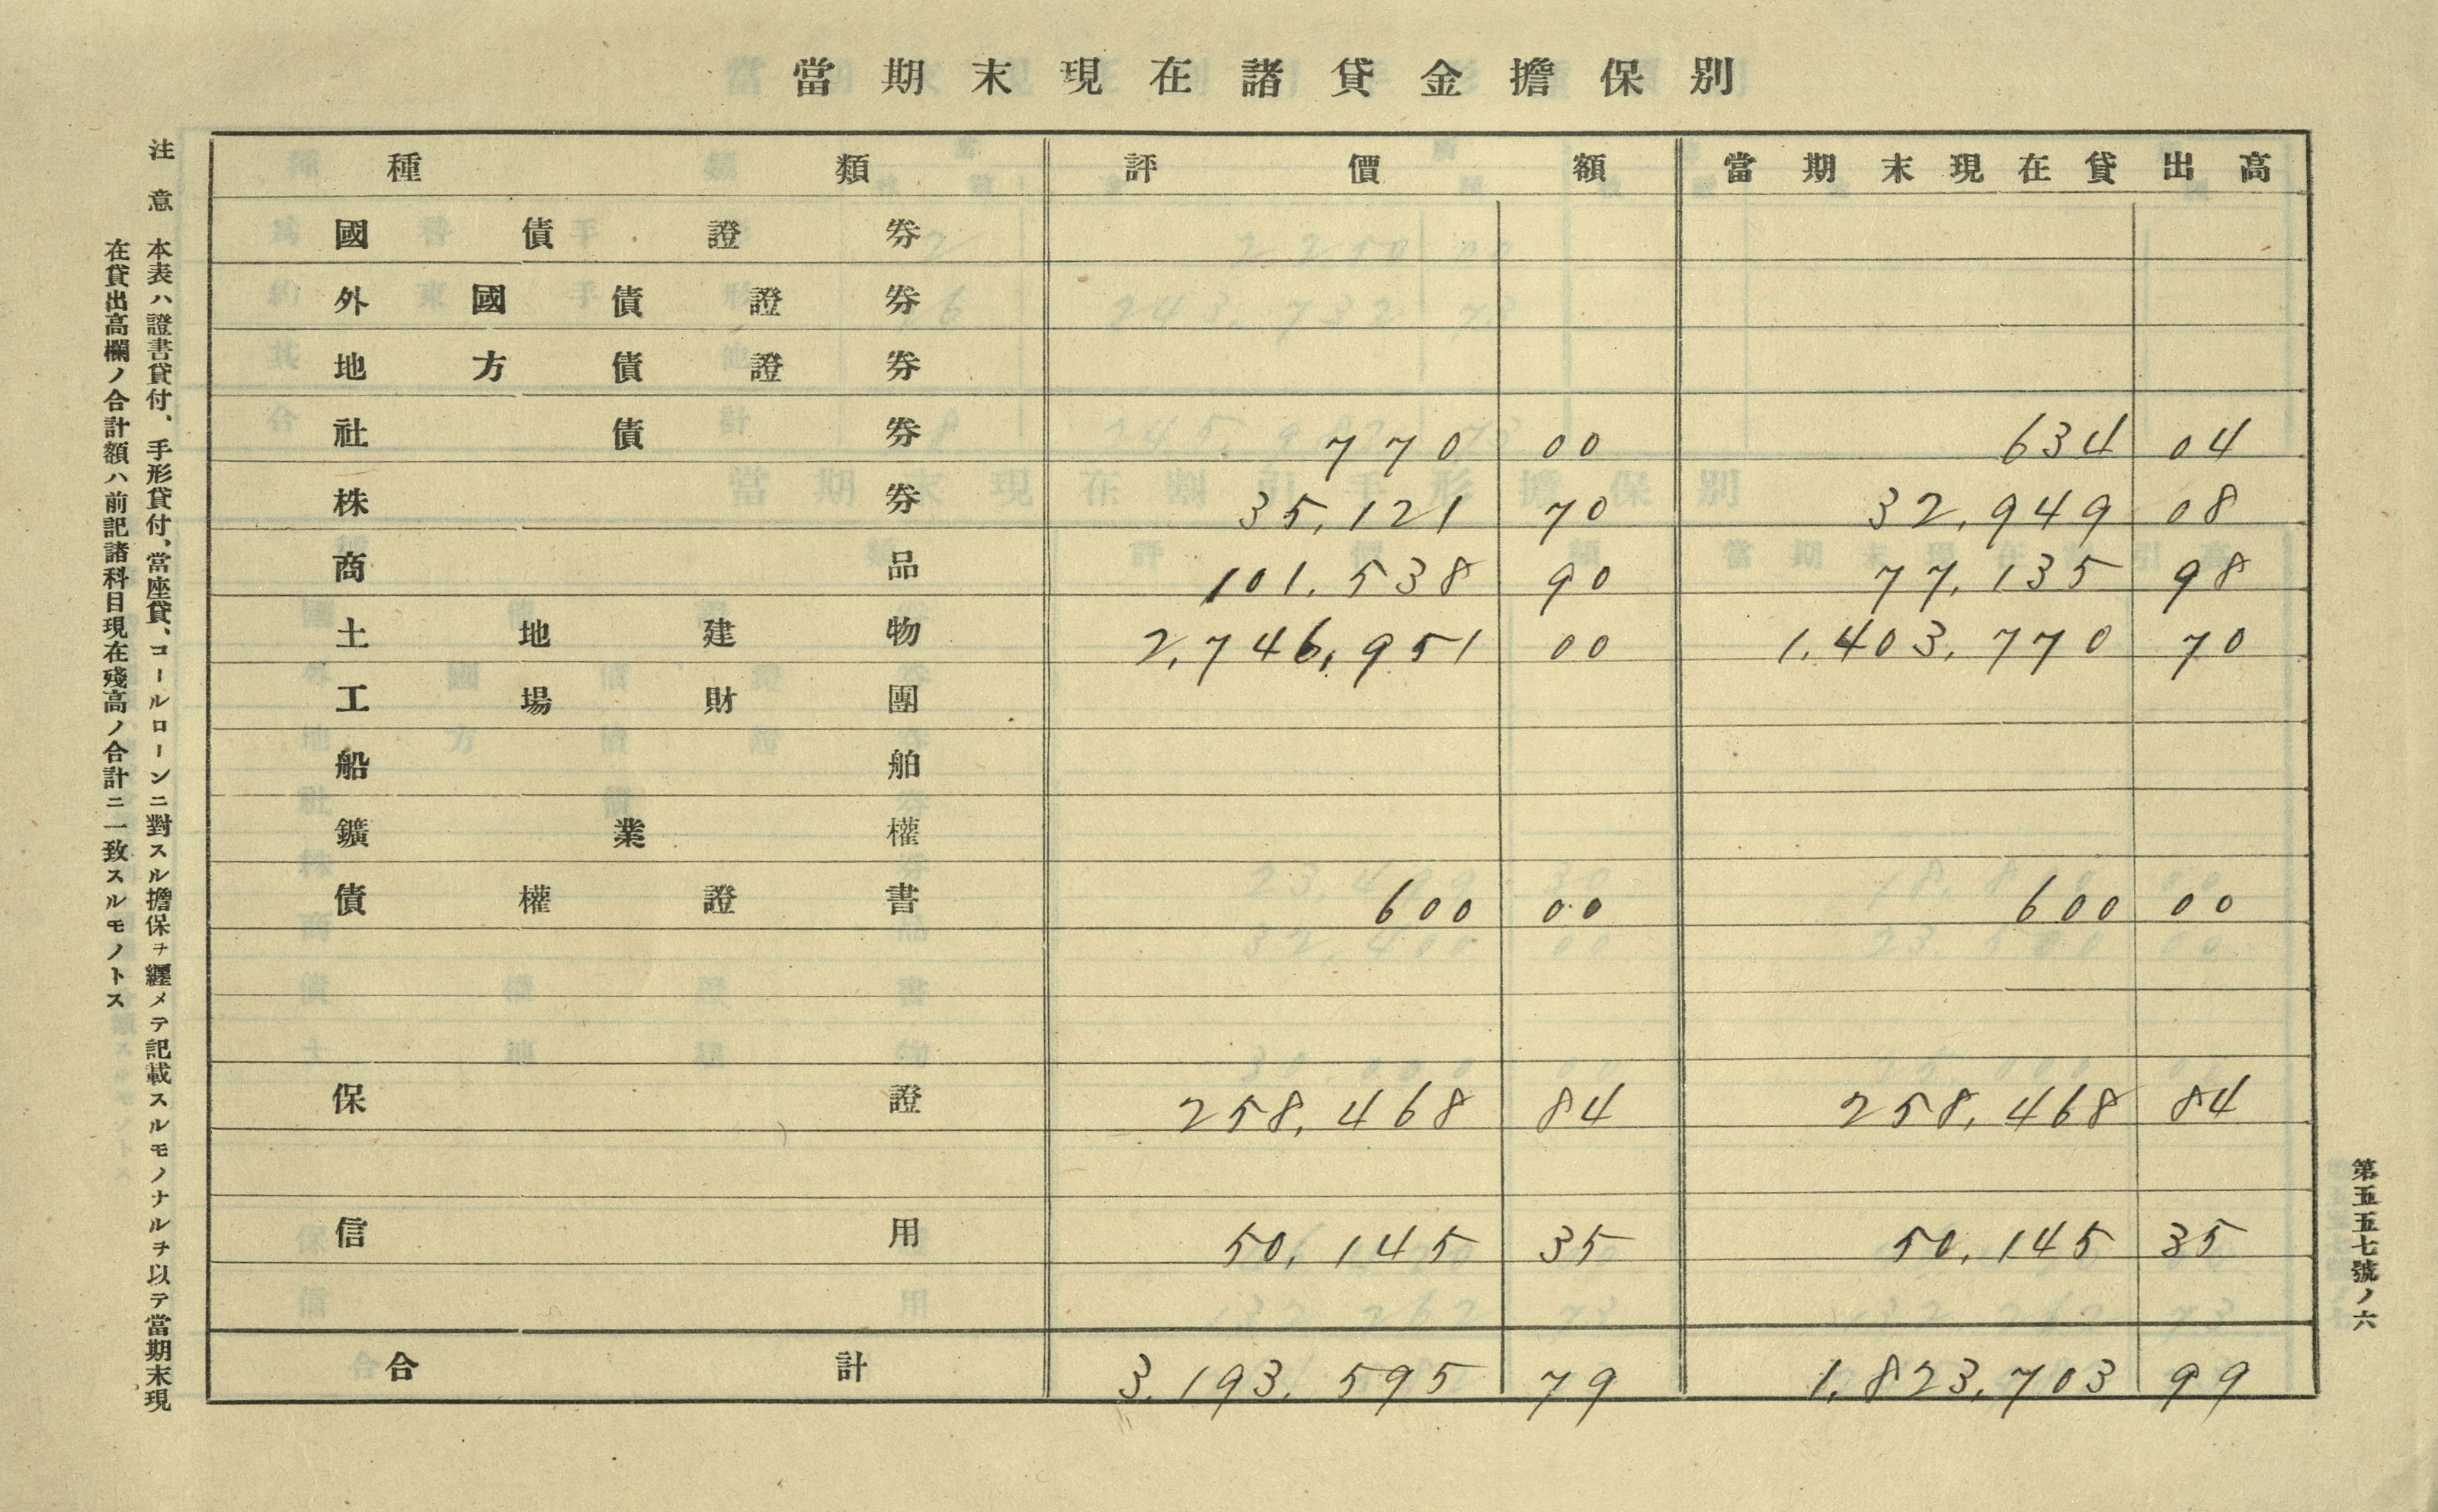 當期末現在諸貸金擔保別
種類 評價額 當期末現在貸出高
國債證券
外國債證券
地方債證券
社債券 770 00 634 04
株券 35,121 70 32,949 08
商品 101,538 90 77,135 98
土地建物 2,746,951 00 1,403,770 70
工場財團
船舶
鑛業權
債權證書 600 00 600 00
保證 258,468 84 258,468 84
信用 50,145 35 50,145 35
合計 3,193,595 79 1,823,703 99
注意 本表ハ證書貸付、手形貸付、當座貸、コールローンニ對スル擔保ヲ纒メテ記載スルモノナルヲ以テ當期末現
在貸出高欄ノ合計額ハ前記諸科目現在殘高ノ合計ニ一致スルモノトス
第五五七號ノ六